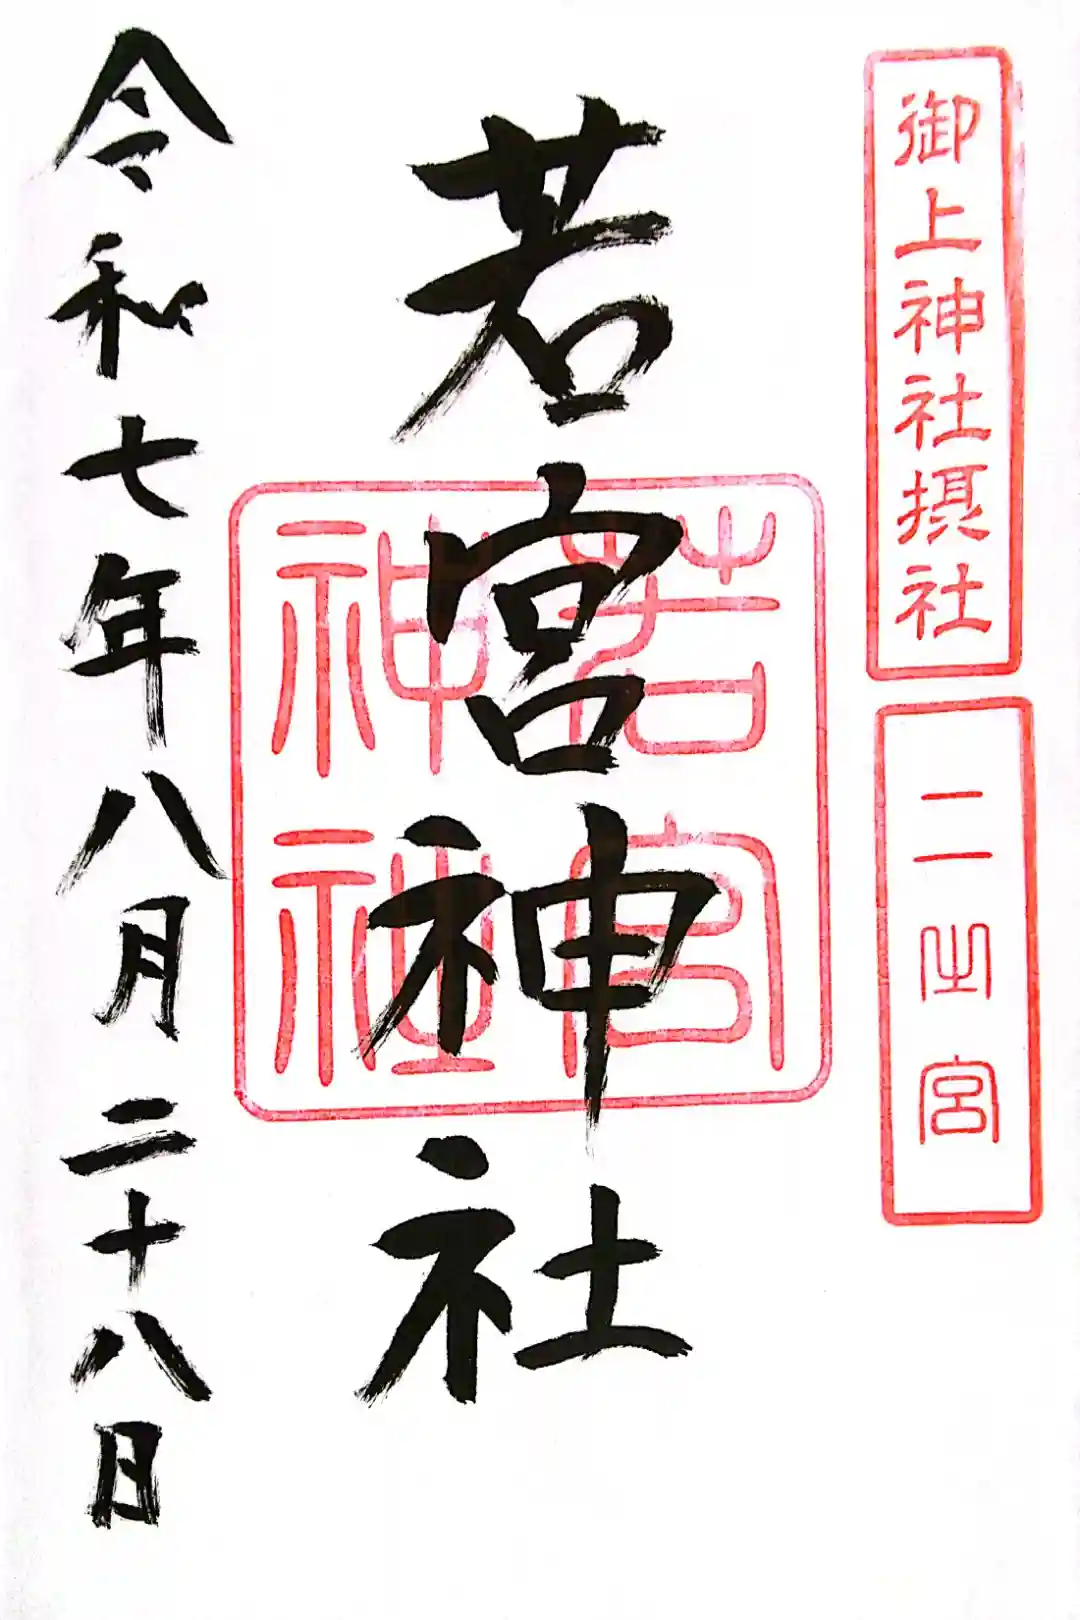 御上神社摂社
二之宮
若宮神社
若宮
神社
令和七年八月二十八日